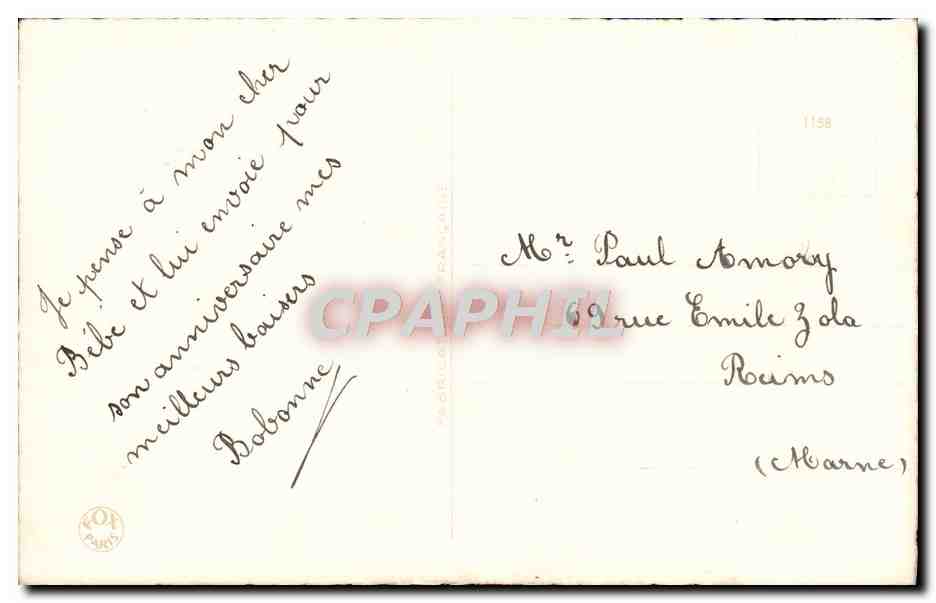 Je pense à mon cher
Bébé et lui envoie pour
son anniversaire mes
meilleurs baisers
Bobonne
FOX
PARIS
FABRICATION FRANÇAISE
1158
Mr. Paul Amory
69 rue Emile Zola
Reims
(Marne)
CPAPHIL